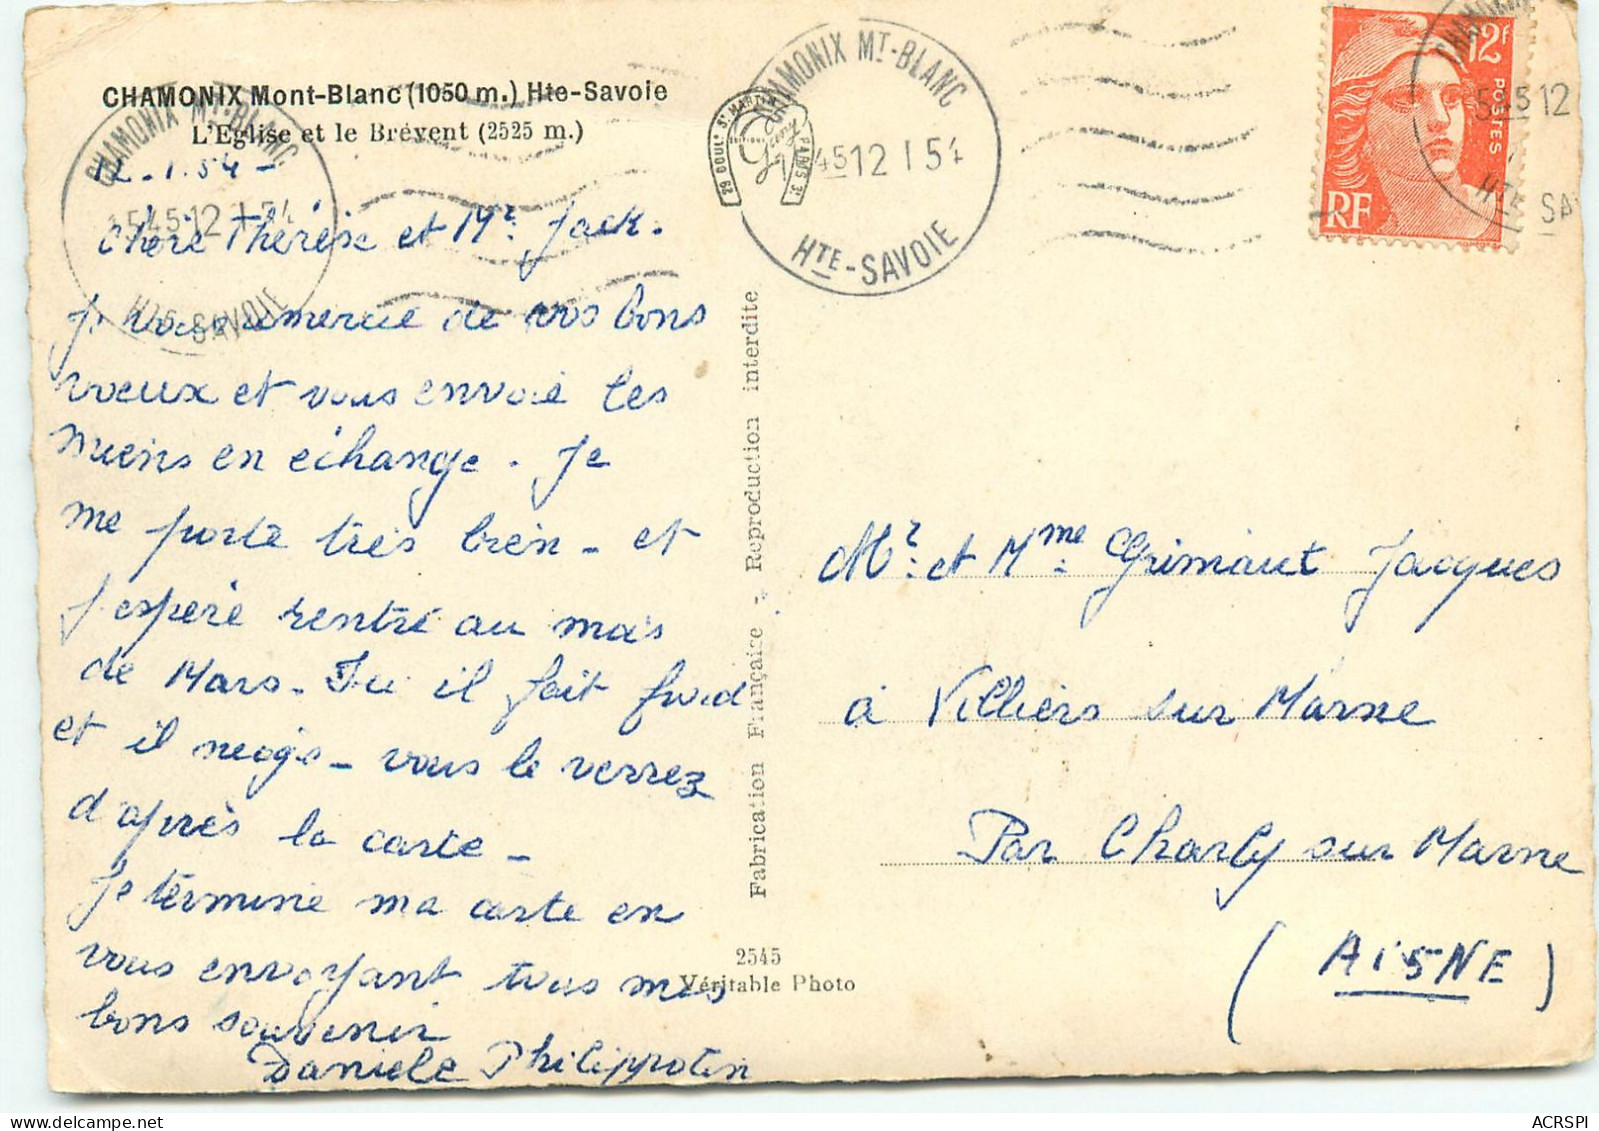 CHAMONIX Mont-Blanc (1050 m.) Hte-Savoie
L'Eglise et le Brévent (2525 m.)
12-1.54-
Chère Thérèse et Mr. Jack.
Je vous remercie de vos bons
voeux et vous envoie les
miens en échange. Je
me porte très bien - et
j'espère rentré au mois
de Mars. Ici il fait froid
et il neige - vous le verrez
d'après la carte -
Je termine ma carte en
vous envoyant tous mes
bons souvenir
Danièle Philippotin
CHAMONIX MT-BLANC
1545 12 1 54
HTE-SAVOIE
29 BOULD ST. MARTIN
Gany
PARIS 3e
CHAMONIX MT-BLANC
45 12 1 54
HTE-SAVOIE
12F
POSTES
RF
CHAMONIX
545 12
HTE SA
Fabrication Française - Reproduction interdite
2545
Véritable Photo
Mr. et Mme Grimaut Jacques
à Villiers sur Marne
Par Charly sur Marne
(AISNE)
ACRSPI